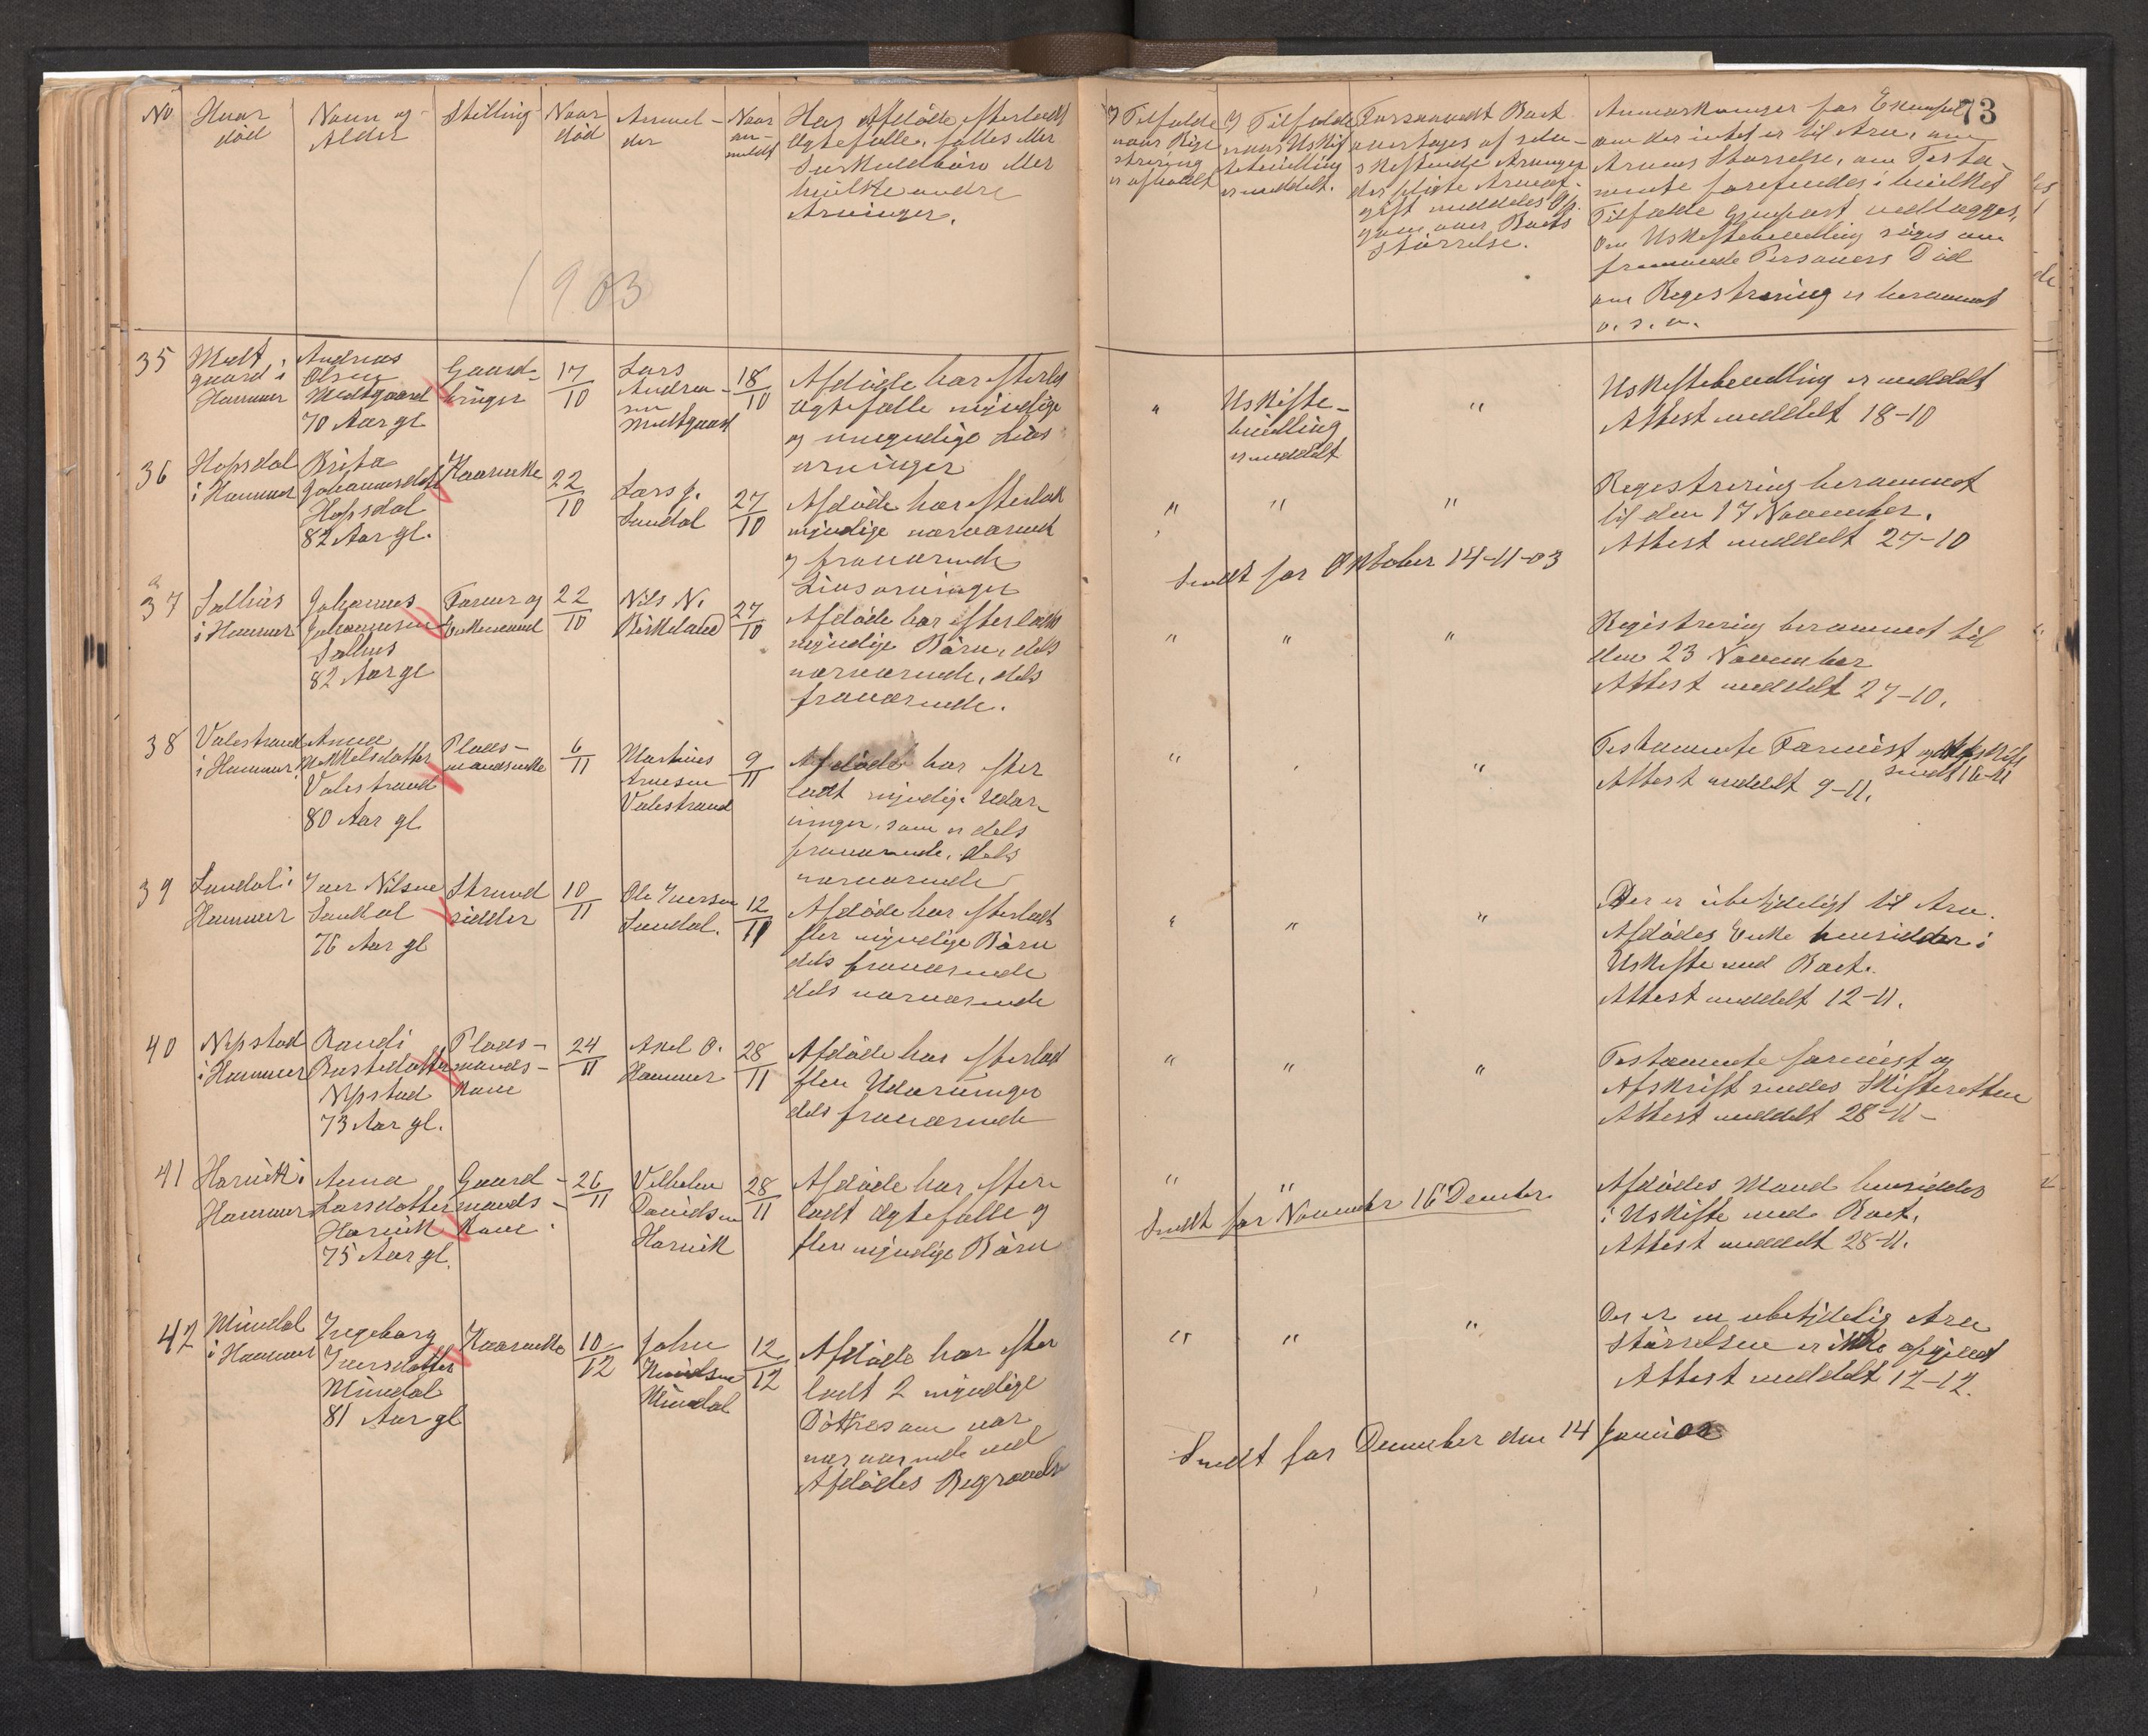 No
Hvor
död
Navn og
Alder
Stilling
Naar
död
Anmel-
der
Naar
an-
meldt
Har Afdöde efterladt
Ægtefælle, fælles eller
Særkuldbörn eller
hvilke andre
Arvinger.
I Tilfælde
naar Regi
strering
er afholdt
I Tilfælde
naar Uskif
tebevilling
er meddelt.
Forsaavidt Boet
overtages af selv-
skiftende Arvinger
der pligte Arveaf-
gift meddeles Op-
gave over Boets
Störrelse.
73
Anmærkninger for Exempel
om der intet er til Arv, om
Arvens Störrelse, om Testa-
mente forefindes i hvilket
Tilfælde Gjenpart vedlægges,
om Uskiftebevilling söges om
fraværende Personers Död
om Registrering er berammet
o. s. v.
1903
35
Midt
gaard i
Hammer
Andreas
Olsen
Midtgaard
70 Aar gl
Gaard-
bruger
17/10
Lars
Andrea-
sen
Midtgaard
18/10
Afdöde har efterladt
Ægtefælle myndige
og umyndige Livs
arvinger
"
Uskifte-
bevilling
er meddelt
"
Uskiftebevilling er meddelt
Attest meddelt 18-10
36
Hopsdal
i Hammer
Brita
Johannesdatt
Hopsdal
82 Aar gl.
Kaarenke
22/10
Lars J.
Sundal
27/10
Afdöde har efterladt
myndige nærværende
og fraværende
Livsarvinger
"
"
"
Registrering berammet
til den 17 November.
Attest meddelt 27-10
Sendt for Oktober 14-11-03
37
Salhus
i Hammer
Johannes
Johannesen
Salhus
82 Aar gl
Farver og
Enkemand
22/10
Nils N.
Birkeland
27/10
Afdöde har efterladt
myndige Börn, dels
nærværende, dels
fraværende.
"
"
"
Registrering berammet til
den 23 November
Attest meddelt 27-10.
38
Valestrand
i Hammer
Anna
Mikkelsdatter
Valestrand
80 Aar gl
Plads-
mandsenke
6/11
Martines
Arnesen
Valestrand
9/11
Afdöde har efter
ladt myndige Udar-
vinger, som er dels
fraværende, dels
nærværende
"
"
Testamente Farvist og Afskrift
sendt 16-11
Attest meddelt 9-11.
39
Sundal i
Hammer
Iver Nilsen
Sundal
76 Aar gl
Strand
sidder
10/11
Ole Iversen
Sundal.
12/11
Afdöde har efterladt
flere myndige Börn
dels fraværende
dels nærværende
"
"
"
Der er ubetydeligt til Arv.
Afdödes Enke hensidder i
Uskifte med Boet.
Attest meddelt 12-11.
40
Nypstad
i Hammer
Randi
Nypstad
73 Aar gl.
Plads-
mands-
Kone
24/11
Axel O.
Hammer
28/11
Afdöde har efterlad
flere Udarvinger
dels fraværende
"
"
"
Testamente forevist og
Afskrift sendes Skifteretten
Attest meddelt 28-11-
41
Hauvik i
Hammer
Anna
Larsdatter
Hauvik
75 Aar gl.
Gaard-
mands-
Kone
26/11
Vilhelm
Davidsen
Hauvik
28/11
Afdöde har efter
ladt Ægtefælle og
flere myndige Börn
"
"
Afdödes Mand hensidder
i Uskifte med Boet.
Attest meddelt 28-11.
Sendt for November 16 December
42
Mundal
i Hammer
Ingeborg
Iversdatter
Mundal
81 Aar gl
Kaarenke
10/12
John
Knudsen
Mundal
12/12
Afdöde har efter
ladt 2 myndige
Döttre som var
nærværende ved
Afdödes Begravelse
"
"
"
Der er en ubetydelig Arv
Störrelsen er ikke opgivet
Attest meddelt 12-12.
Sendt for December den 14 Januar